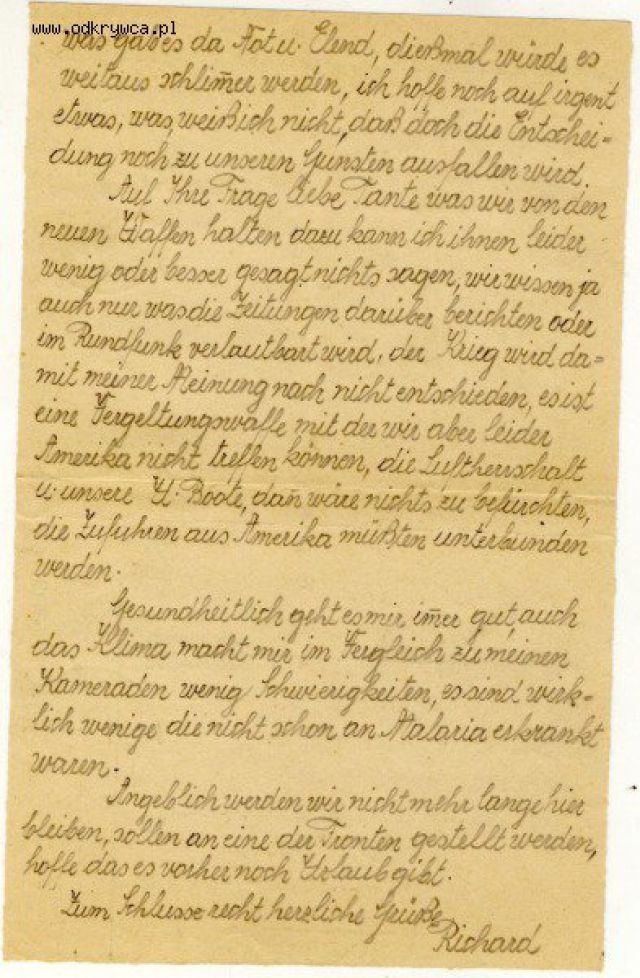 www.odkrywca.pl
was gab es da Not u. Elend, dießmal würde es
weitaus schlim̄er werden, ich hoffe noch auf irgent
etwas, was, weiß ich nicht, daß doch die Entschei-
dung noch zu unseren Gunsten ausfallen wird.
Auf Ihre Frage liebe Tante was wir von den
neuen Waffen halten dazu kann ich ihnen leider
wenig oder besser gesagt nichts sagen, wir wissen ja
auch nur was die Zeitungen darüber berichten oder
im Rundfunk verlautbart wird, der Krieg wird da-
mit meiner Meinung nach nicht entschieden, es ist
eine Vergeltungswaffe mit der wir aber leider
Amerika nicht treffen können, die Luftherrschaft
u. unsere U. Boote, dan̄ wäre nichts zu befürchten,
die Zufuhren aus Amerika müßten unterbunden
werden.
Gesundheitlich geht es mir im̄er gut, auch
das Klima macht mir im Vergleich zu meinen
Kameraden wenig Schwierigkeiten, es sind wirk-
lich wenige die nicht schon an Malaria erkrankt
waren.
Angeblich werden wir nicht mehr lange hier
bleiben, sollen an eine der Fronten gestellt werden,
hoffe das es vorher noch Urlaub gibt.
Zum Schlusse recht herzliche Grüße
Richard